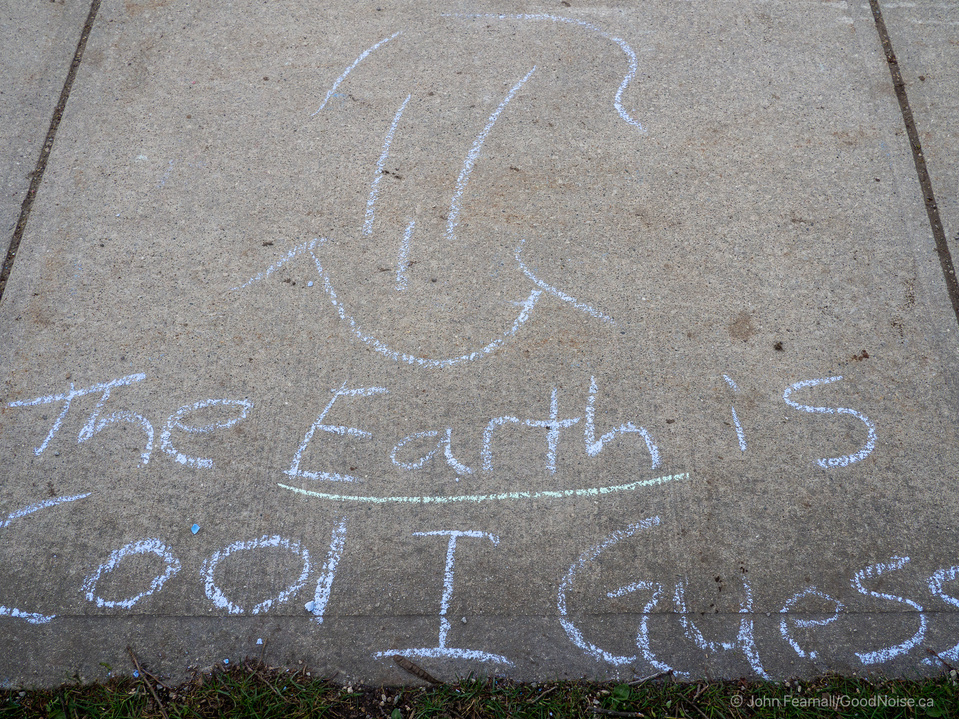 The Earth is
Cool I Guess
© John Fearnall/GoodNoise.ca